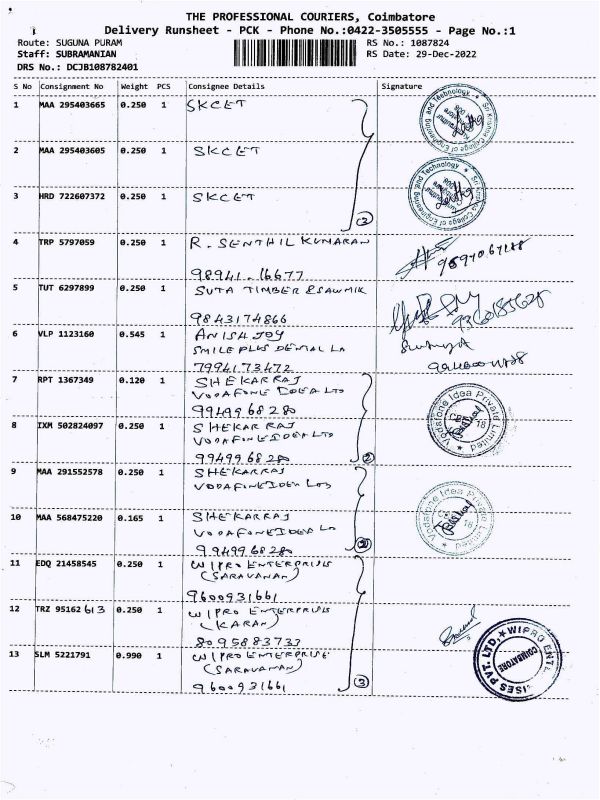 THE PROFESSIONAL COURIERS, Coimbatore
Delivery Runsheet - PCK - Phone No.:0422-3505555 - Page No.:1
Route: SUGUNA PURAM
RS No.: 1087824
Staff: SUBRAMANIAN
RS Date: 29-Dec-2022
DRS No.: DCJB108782401
S No Consignment No Weight PCS Consignee Details Signature
1 MAA 295403665 0.250 1 SKCET
2 MAA 295403605 0.250 1 SKCET
3 HRD 722607372 0.250 1 SKCET
3
4 TRP 5797059 0.250 1 R. SENTHIL KUMARAN
98941-16677
5 TUT 6297899 0.250 1 SUTA TIMBER & SAWMIK
9843174866
6 VLP 1123160 0.545 1 ANISH JOY
SMILE PLUS DENTAL LA
7994173472
7 RPT 1367349 0.120 1 SHEKARRAJ
VODAFONE IDEA LTD
9949968280
8 IXM 502824097 0.250 1 SHEKAR RAJ
VODAFONE IDEA LTD
9949968280
2
Vodafone Idea Private Limited
CBE
18
9 MAA 291552578 0.250 1 SHEKARRAJ
VODAFONE IDEA LTD
10 MAA 568475220 0.165 1 SHEKARRAJ
VODAFONE IDEA LD
9949968280
2
Vodafone Idea Private Limited
18
11 EDQ 21458545 0.250 1 WIPRO ENTERPRISES
(SARAVANAN)
9600931661
12 TRZ 95162613 0.250 1 WIPRO ENTERPRISES
(KARAN)
8095883737
13 SLM 5221791 0.990 1 WIPRO ENTERPRISE
(SARAVANAN)
9600931661
3
WIPRO ENT
ISES PVT. LTD.
COIMBATORE